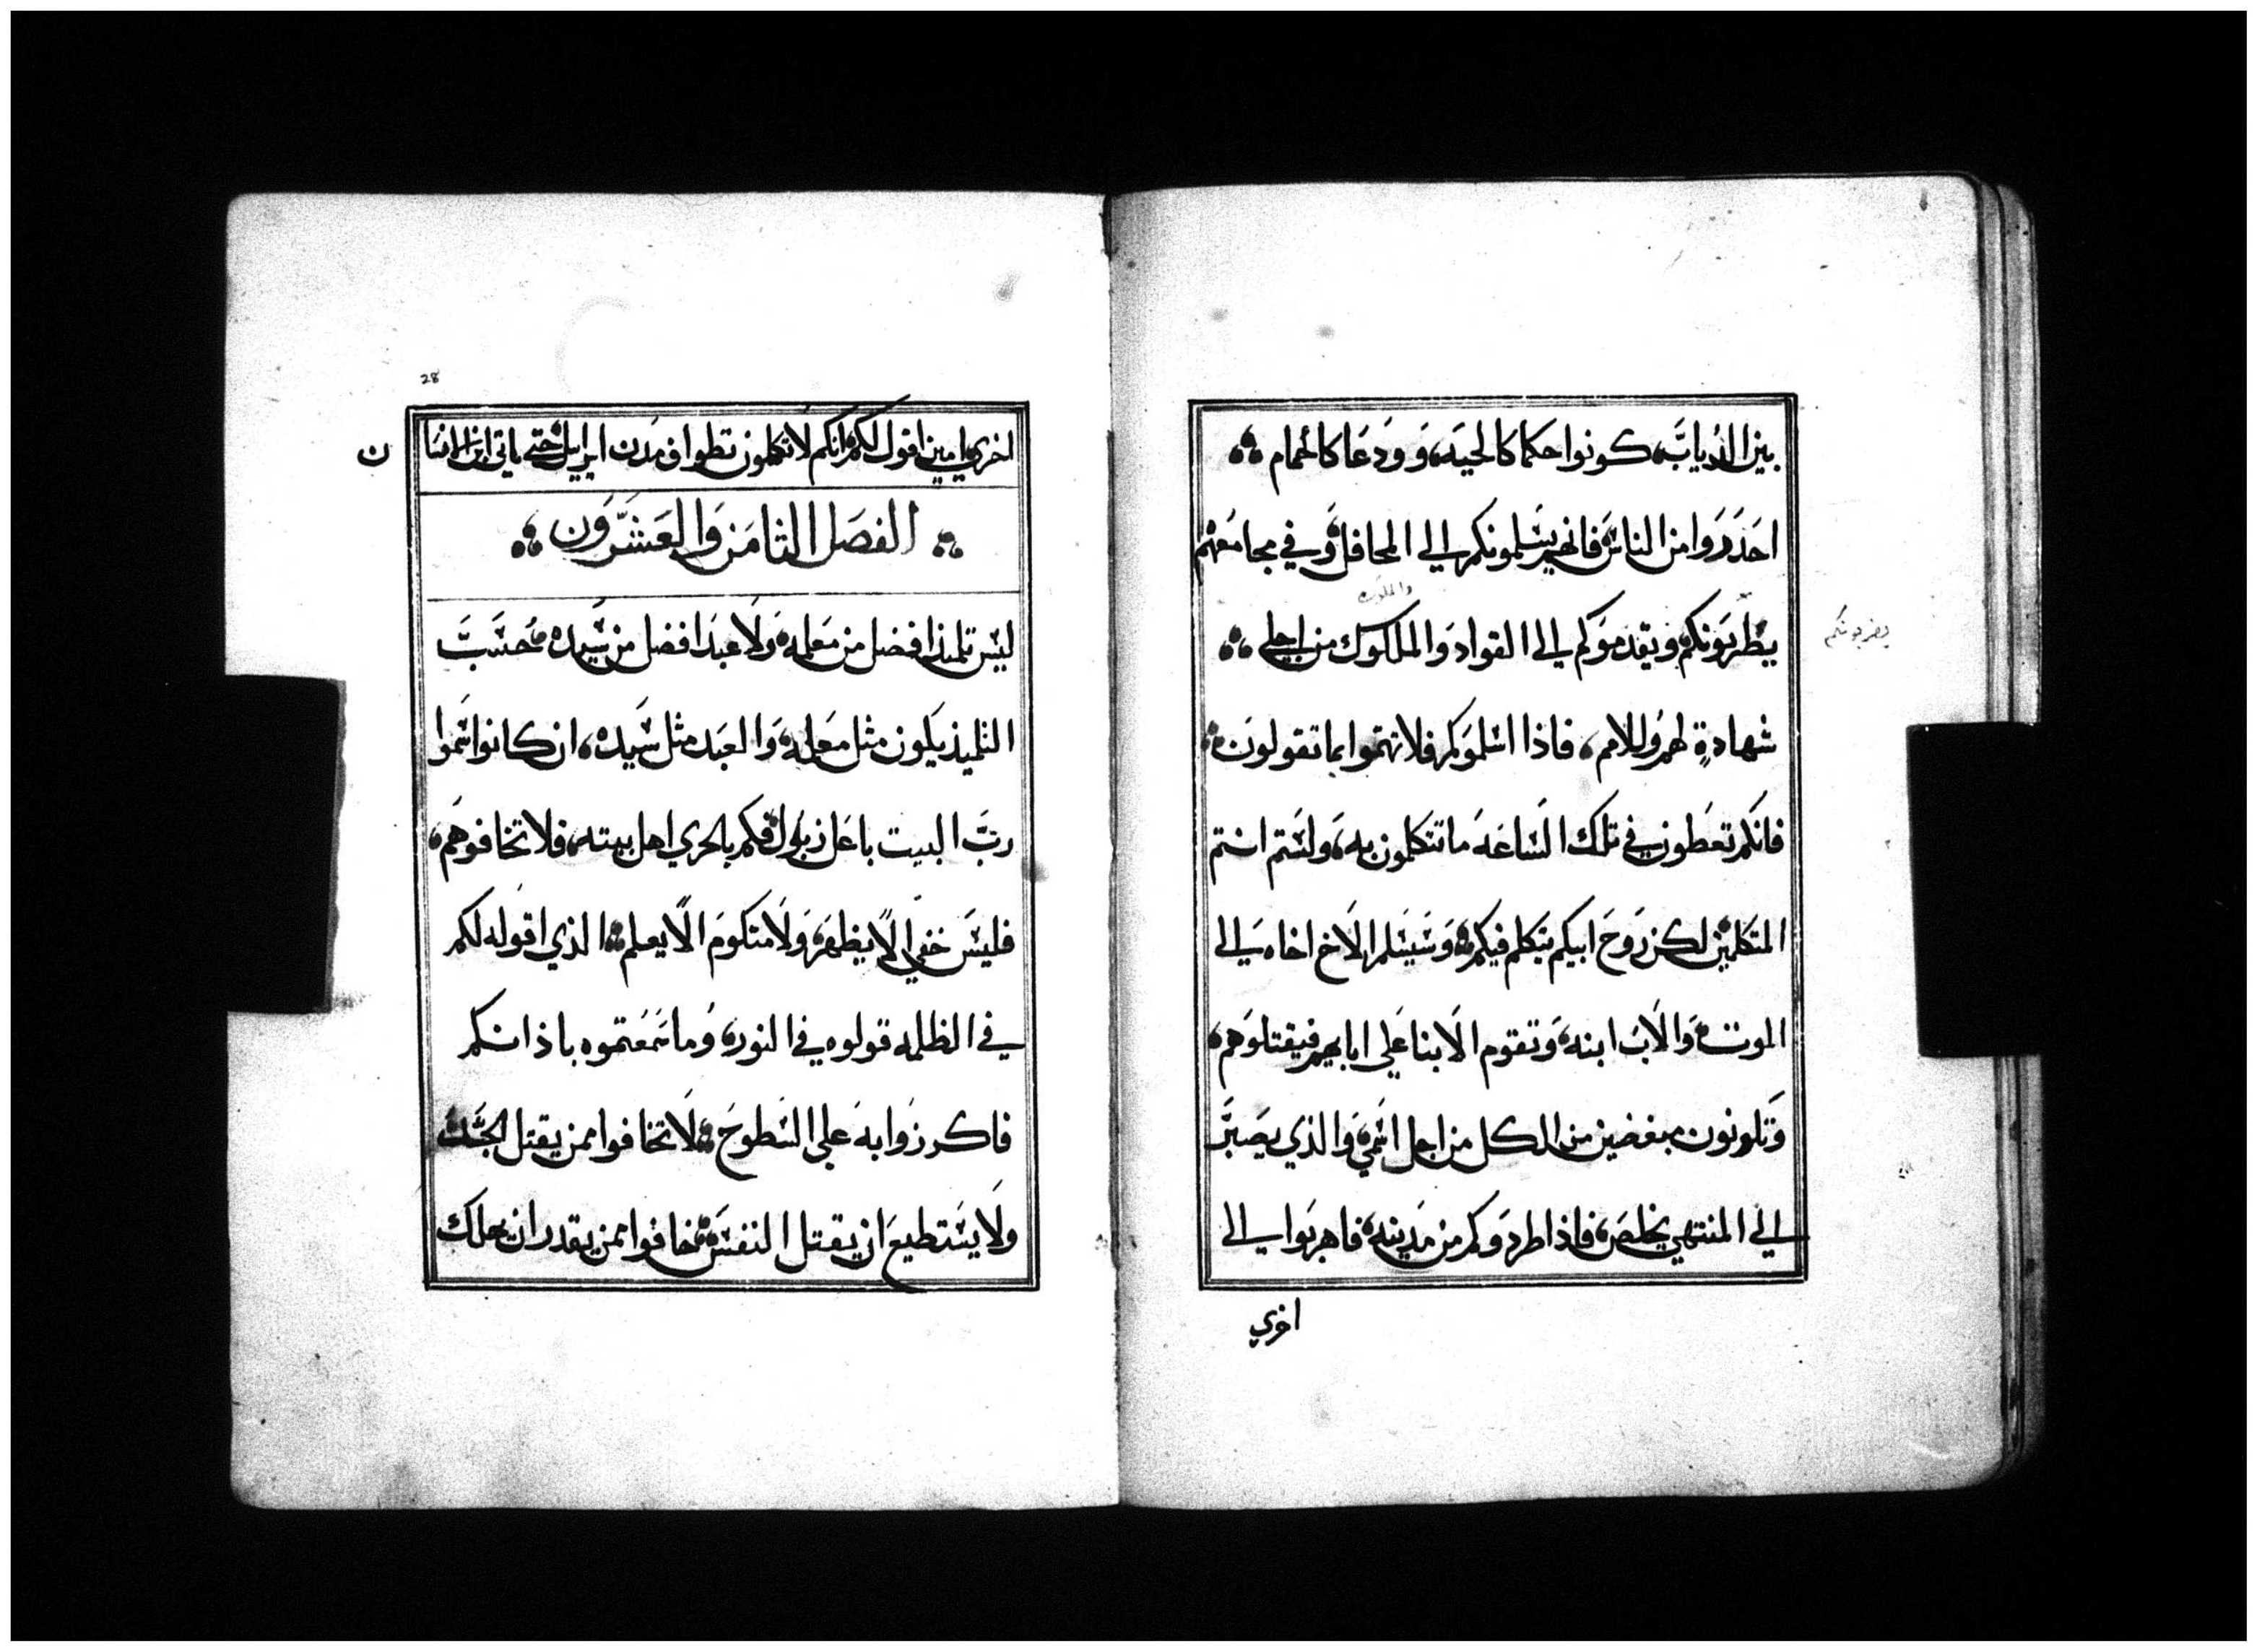 بين الدياب، كونوا حكما كالحيه، وودعا كالحمام
احذروا من الناس فانهم يسلمونكم الي المحافل وفي مجامعهم
والملوك
يظربونكم ويقدموكم الي القواد والملكوك من اجلي
يضربونكم
شهادةٍ لهم وللامم، فاذا اسلموكم فلا تهتموا بما تقولون
فانكم تعطون في تلك الساعه ما تتكلمون به، ولستم انتم
المتكلمين لكن روح ابيكم يتكلم فيكم وسيسلم الاخ اخاه الي
الموت والاب ابنه، وتقوم الابنا علي ابايهم فيقتلوهم،
وتكونون مبغضين من الكل من اجل اسمي والذي يصبر
الي المنتهي يخلص، فاذا طردوكم من مدينه، فاهربوا الي
اخري
28
اخري امين اقول لكم انكم لا تكملون تطواف مدن اسراييل حتي ياتي ابن الانسا
ن
الفصل الثامن والعشرون
ليس تلميذ افضل من معلمه ولا عبد افضل من سيده محسب
التلميذ يكون مثل معلمه، والعبد مثل سيده، ان كانوا سموا
رب البيت باعل زبول فكم بالحري اهل بيته، فلا تخافوهم،
فليس خفي الا يظهر، ولا مكتوم الا يعلم الذي اقوله لكم
في الظلمه قولوه في النور، وما سمعتموه باذانكم
فاكرزوا به علي السطوح لا تخافوا ممن يقتل الجسد
ولا يستطيع ان يقتل النفس خافوا ممن يقدر ان يهلك